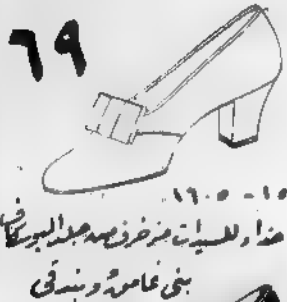 ٦٩
١٥-١٦٠٥٠
حذاء للسيدات مزخرف من جلد البوكاف
بنى غامق وبندقى